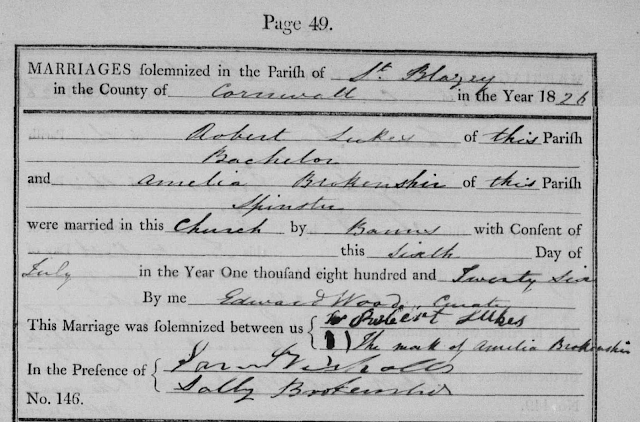 Page 49.
MARRIAGES solemnized in the Parish of St. Blazey
in the County of Cornwall in the Year 1826
Robert Lukes of this Parish
Bachelor
and Amelia Brokenshir of this Parish
Spinster
were married in this Church by Banns with Consent of
this Sixth Day of
July in the Year One thousand eight hundred and Twenty Six
By me Edward Wood Curate
This Marriage was solemnized between us { Robert Lukes
The mark of Amelia Brokenshir
In the Presence of { Nicholls
Sally Brokenshir
No. 146.